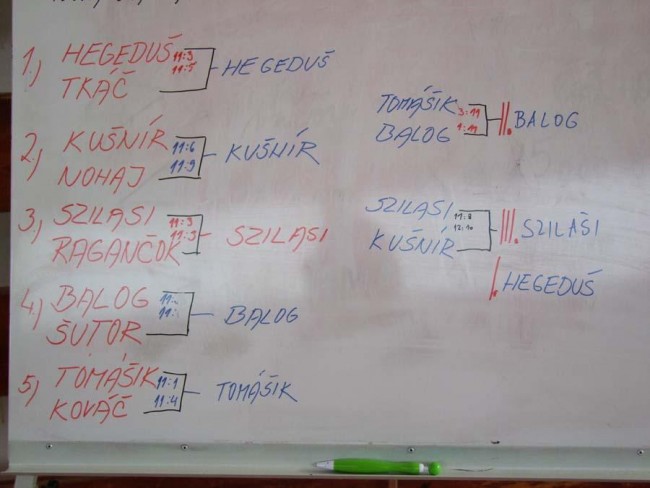 1.) HEGEDUŠ 11:3 HEGEDUŠ
TKÁČ 11:5
2.) KUŠNÍR 11:6 KUŠNÍR
NOHAJ 11:9
3.) SZILASI 11:3 SZILASI
RAGANČOK 11:9
4.) BALOG BALOG
ŠUTOR
5.) TOMÁŠIK 11:1 TOMÁŠIK
KOVÁČ 11:4
TOMÁŠIK 3:11 II. BALOG
BALOG 1:11
SZILASI 11:8 III. SZILAŠI
KUŠNÍR 12:10
I. HEGEDUŠ